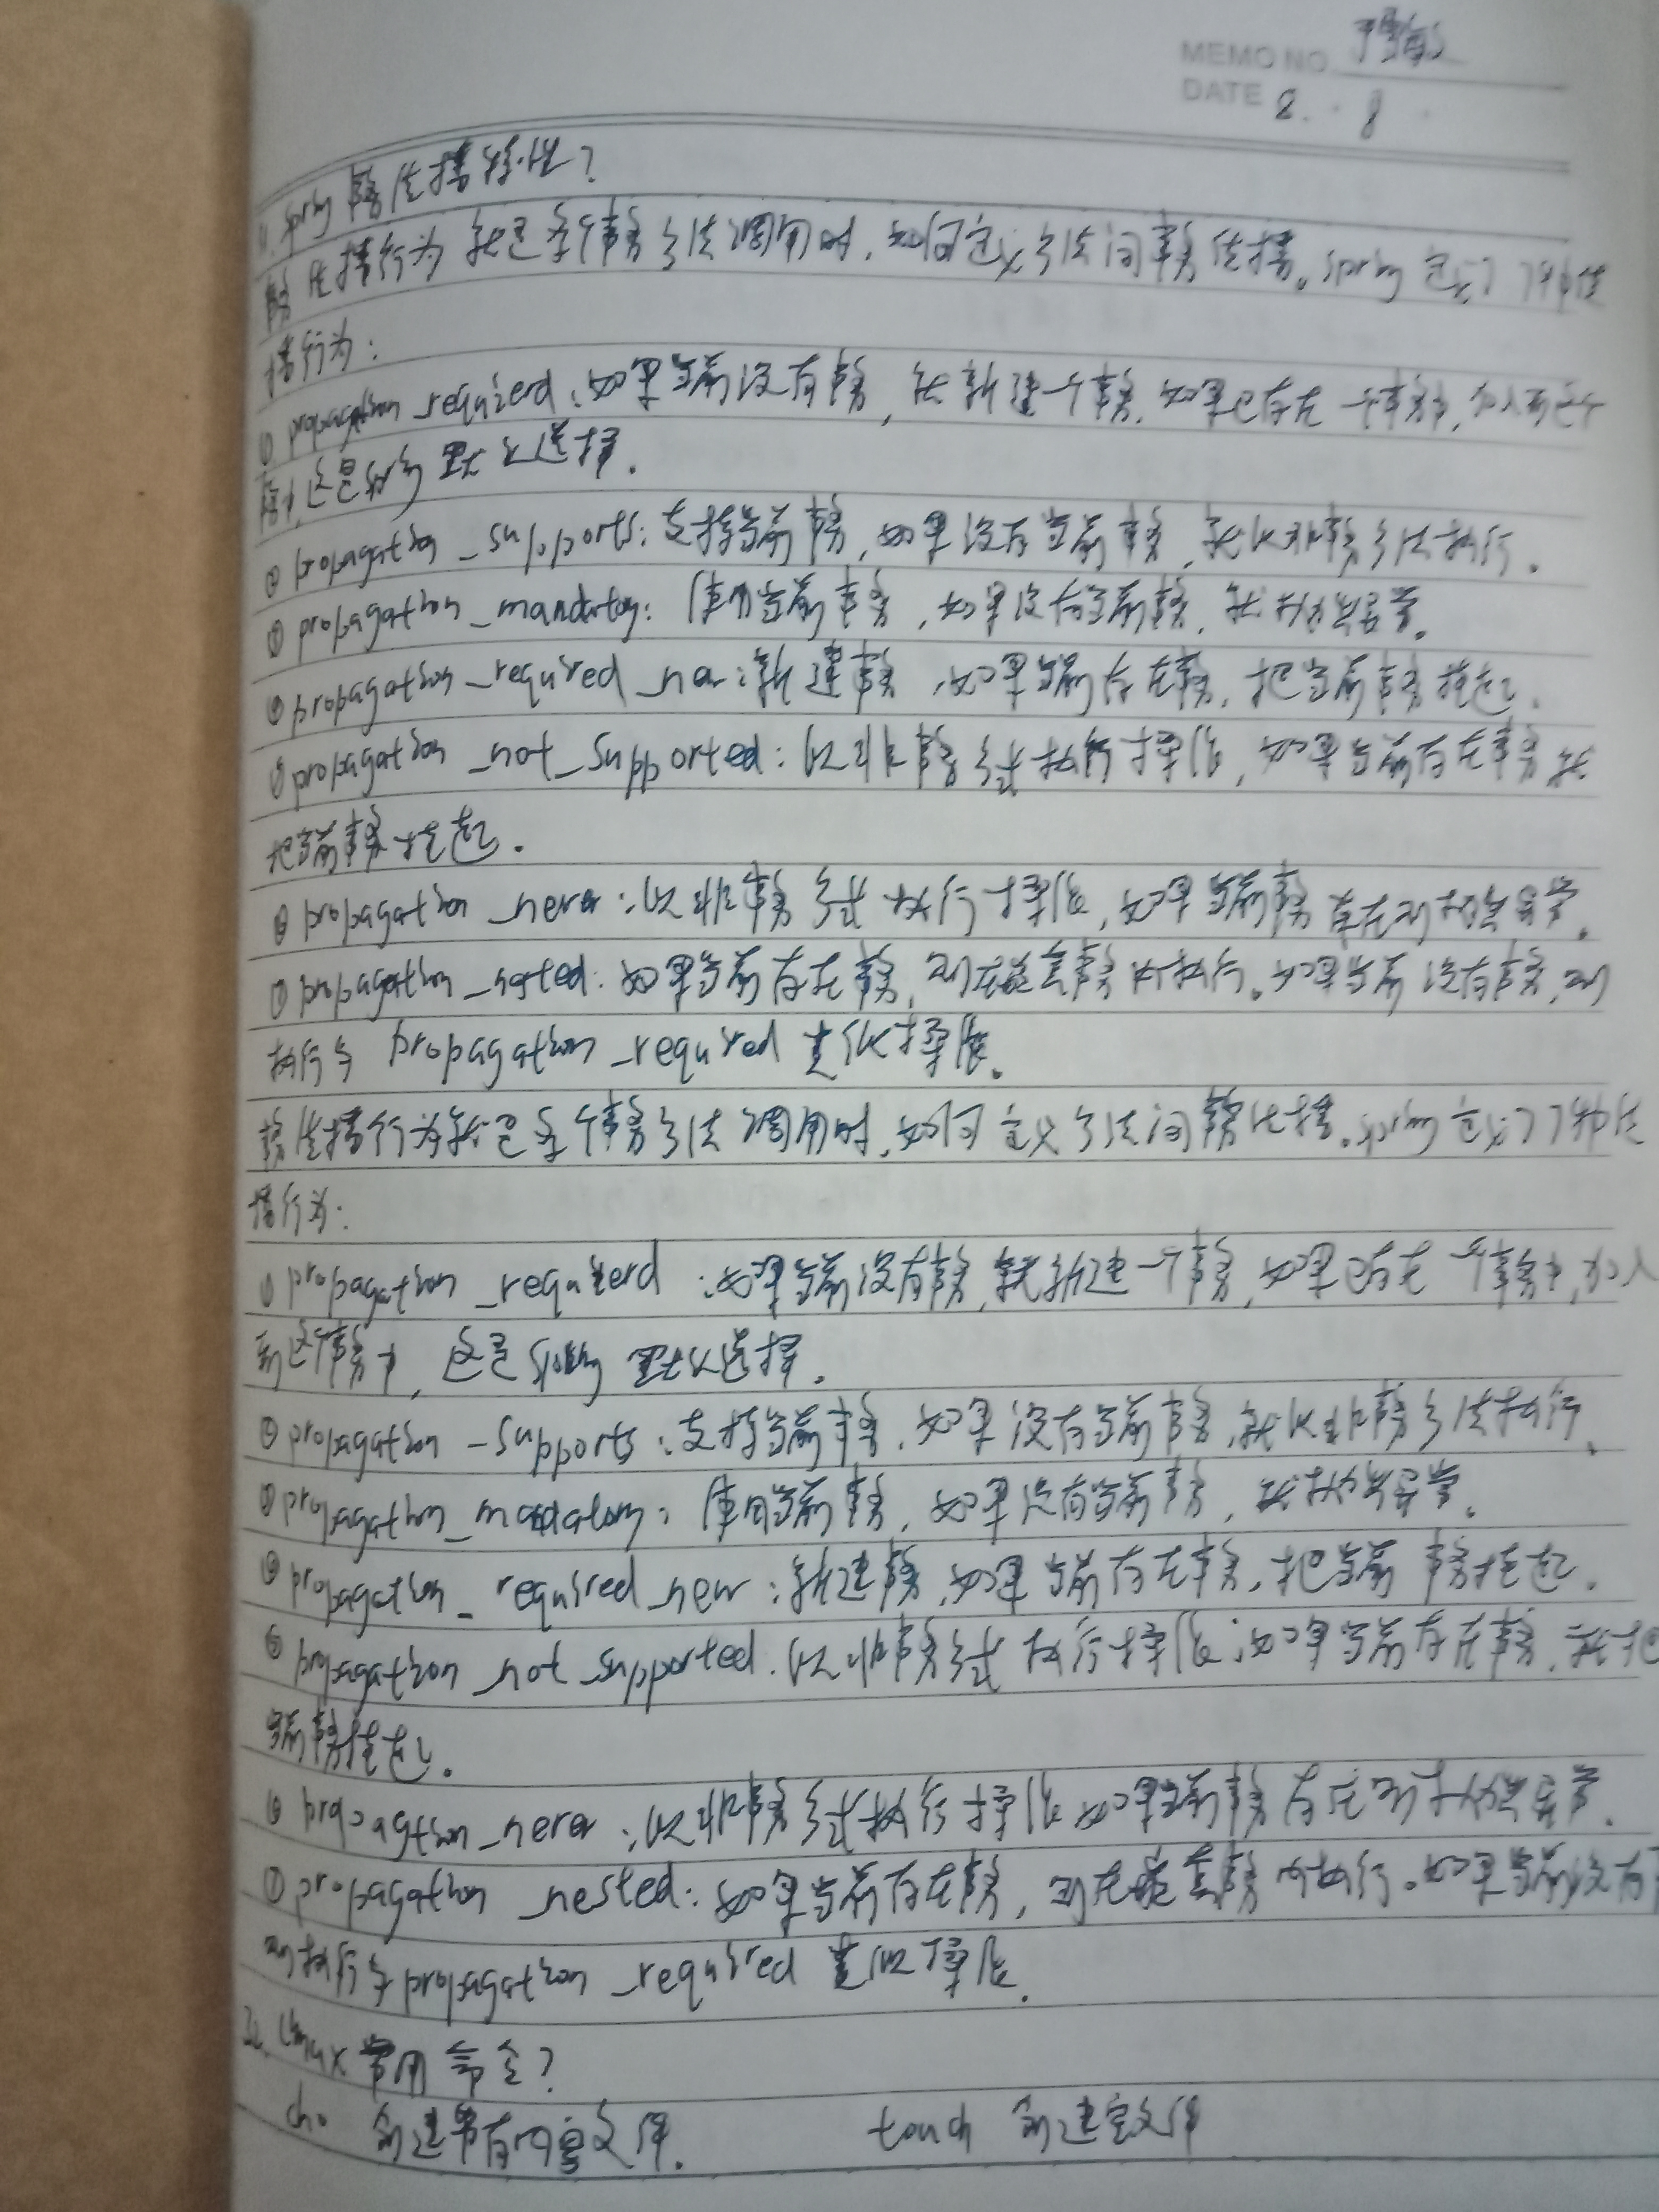 MEMO NO
DATE 2. 8
1. spring 事务传播特性?
事务传播行为就是多个事务方法调用时,如何定义方法间事务传播。spring 定义了7种传
播行为:
① propagation_requierd:如果当前没有事务,就新建一个事务,如果已存在一个事务中,加入到这个
事务中,这是 spring 默认选择.
② propagation_supports:支持当前事务,如果没有当前事务,就以非事务方法执行.
③ propagation_mandatory:使用当前事务,如果没有当前事务,就抛出异常.
④ propagation_required_new:新建事务,如果当前存在事务,把当前事务挂起.
⑤ propagation_not_supported:以非事务方式执行操作,如果当前存在事务就
把当前事务挂起.
⑥ propagation_never:以非事务方式执行操作,如果当前事务存在则抛出异常.
⑦ propagation_nested:如果当前存在事务,则在嵌套事务内执行。如果当前没有事务,则
执行与 propagation_required 类似操作。
事务传播行为就是多个事务方法调用时,如何定义方法间事务传播。spring 定义了7种传
播行为:
① propagation_requierd:如果当前没有事务,就新建一个事务,如果已存在一个事务中,加入
到这个事务中,这是 spring 默认选择.
② propagation_supports:支持当前事务,如果没有当前事务,就以非事务方法执行.
③ propagation_mandatory:使用当前事务,如果没有当前事务,就抛出异常.
④ propagation_required_new:新建事务,如果当前存在事务,把当前事务挂起.
⑤ propagation_not_supported.以非事务方式执行操作,如果当前存在事务,就把
当前事务挂起.
⑥ propagation_never:以非事务方式执行操作如果当前事务存在则抛出异常.
⑦ propagation_nested:如果当前存在事务,则在嵌套事务内执行。如果当前没有
则执行与 propagation_required 类似操作.
Linux 常用命令?
创建带有内容文件. touch 创建空文件